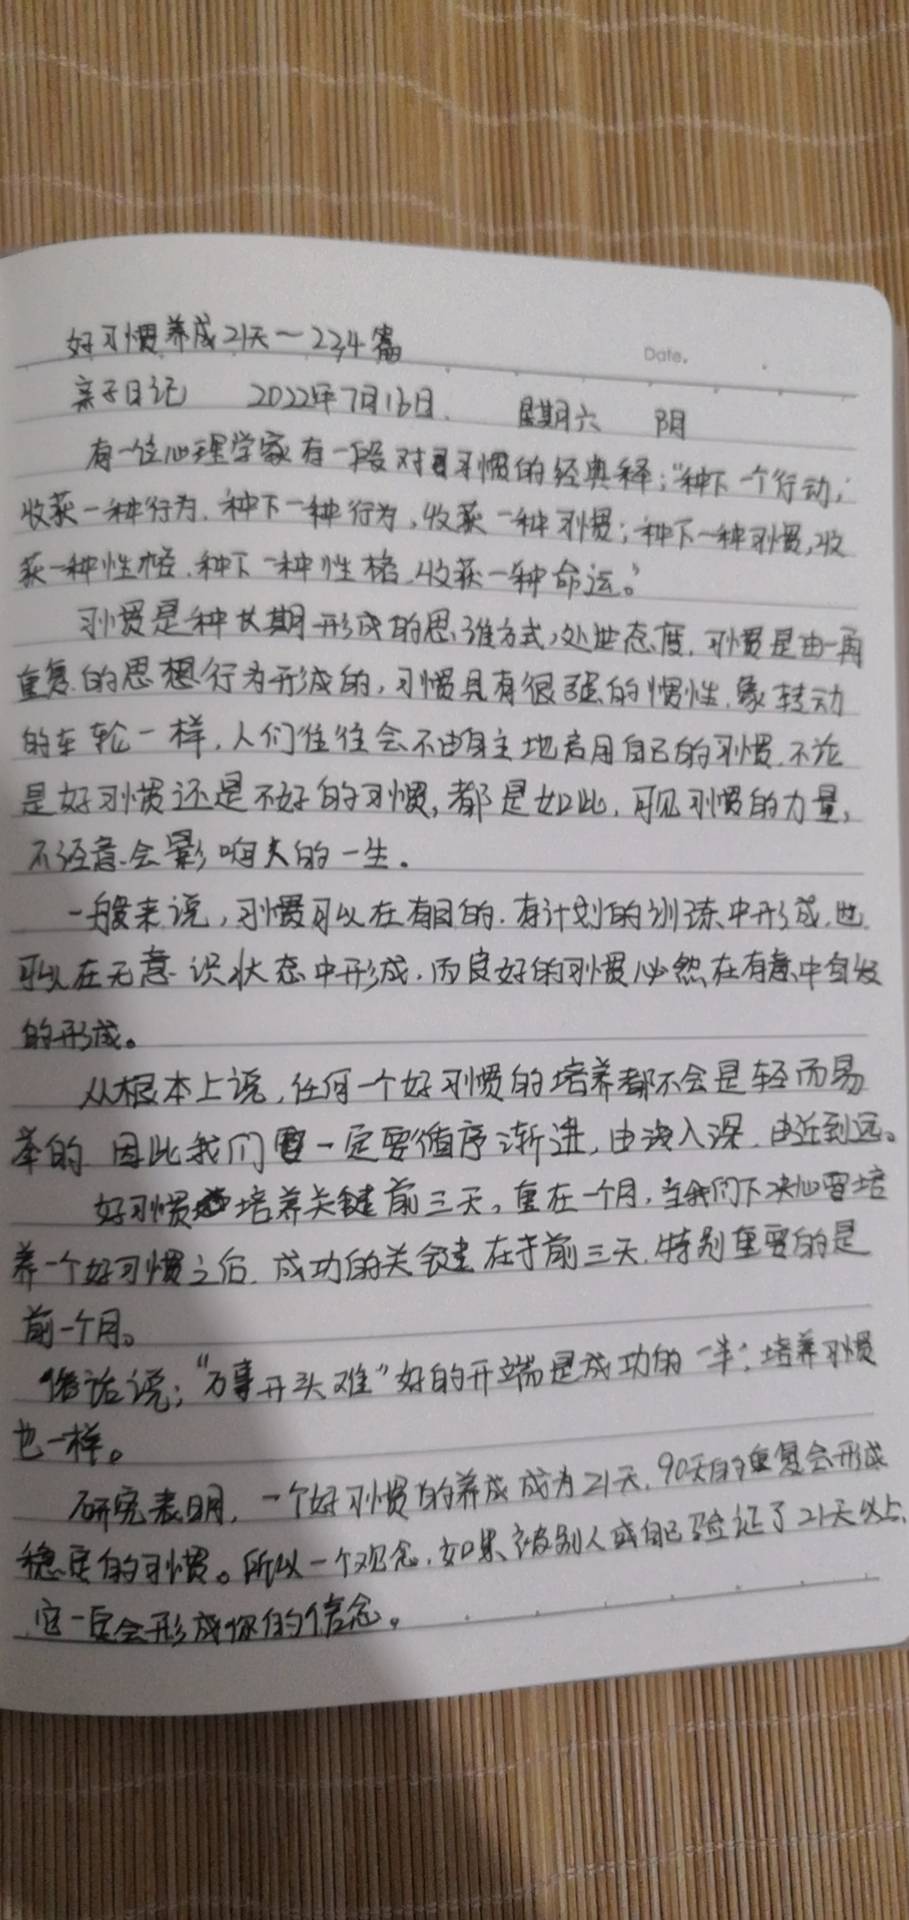 好习惯养成21天一234篇
Date.
亲子日记 2022年7月16日. 星期六 阴
有一位心理学家有一段对习惯的经典释:"种下一个行动,
收获一种行为.种下一种行为,收获一种习惯;种下一种习惯,收
获一种性格.种下一种性格.收获一种命运。"
习惯是种长期形成的思维方式,处世态度.习惯是由一再
重复的思想行为形成的,习惯具有很强的惯性.象转动
的车轮一样,人们往往会不由自主地启用自己的习惯.不论
是好习惯还是不好的习惯,都是如此.可见习惯的力量,
不经意会影响人的一生。
一般来说,习惯可以在有目的.有计划的训练中形成.也
可以在无意识状态中形成.而良好的习惯必然在有意中自发
的形成。
从根本上说,任何一个好习惯的培养都不会是轻而易
举的.因此我们一定要循序渐进,由浅入深.由近到远。
好习惯培养关键前三天,重在一个月.当我们下决心要培
养一个好习惯之后.成功的关键在于前三天.特别重要的是
前一个月。
俗话说;"万事开头难"好的开端是成功的一半;培养习惯
也一样。
研究表明,一个好习惯的养成成为21天.90天的重复会形成
稳定的习惯。所以一个观念.如果被别人或自己验证了21天以上,
它一定会形成你的信念。